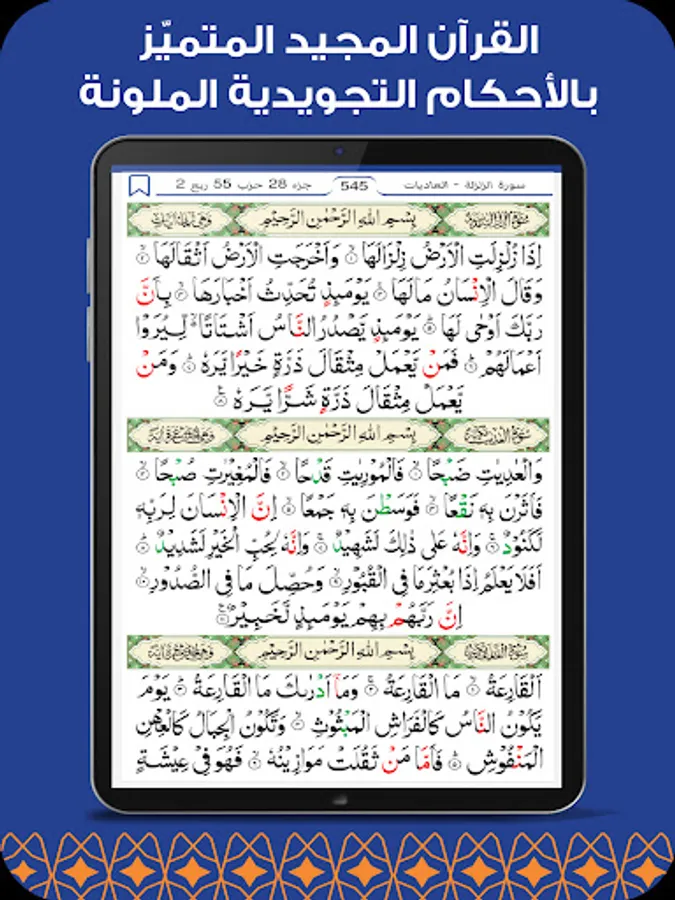 القرآن المجيد المتميّز
بالأحكام التجويدية الملونة
سورة الزلزلة - العاديات 545 جزء 28 حزب 55 ربع 2
بِسْمِ اللهِ الرَّحْمٰنِ الرَّحِيْمِ
اِذَا زُلْزِلَتِ الْاَرْضُ زِلْزَالَهَا ۝١ وَاَخْرَجَتِ الْاَرْضُ اَثْقَالَهَا ۝٢
وَقَالَ الْاِنْسَانُ مَا لَهَا ۝٣ يَوْمَىِٕذٍ تُحَدِّثُ اَخْبَارَهَا ۝٤ بِاَنَّ
رَبَّكَ اَوْحٰى لَهَا ۝٥ يَوْمَىِٕذٍ يَّصْدُرُ النَّاسُ اَشْتَاتًا لِّيُرَوْا
اَعْمَالَهُمْ ۝٦ فَمَنْ يَّعْمَلْ مِثْقَالَ ذَرَّةٍ خَيْرًا يَّرَهٗ ۝٧ وَمَنْ
يَّعْمَلْ مِثْقَالَ ذَرَّةٍ شَرًّا يَّرَهٗ ۝٨
بِسْمِ اللهِ الرَّحْمٰنِ الرَّحِيْمِ
وَالْعٰدِيٰتِ ضَبْحًا ۝١ فَالْمُوْرِيٰتِ قَدْحًا ۝٢ فَالْمُغِيْرٰتِ صُبْحًا ۝٣
فَاَثَرْنَ بِهٖ نَقْعًا ۝٤ فَوَسَطْنَ بِهٖ جَمْعًا ۝٥ اِنَّ الْاِنْسَانَ لِرَبِّهٖ
لَكَنُوْدٌ ۝٦ وَاِنَّهٗ عَلٰى ذٰلِكَ لَشَهِيْدٌ ۝٧ وَاِنَّهٗ لِحُبِّ الْخَيْرِ لَشَدِيْدٌ ۝٨
اَفَلَا يَعْلَمُ اِذَا بُعْثِرَ مَا فِى الْقُبُوْرِ ۝٩ وَحُصِّلَ مَا فِى الصُّدُوْرِ ۝١٠
اِنَّ رَبَّهُمْ بِهِمْ يَوْمَىِٕذٍ لَّخَبِيْرٌ ۝١١
بِسْمِ اللهِ الرَّحْمٰنِ الرَّحِيْمِ
اَلْقَارِعَةُ ۝١ مَا الْقَارِعَةُ ۝٢ وَمَآ اَدْرٰىكَ مَا الْقَارِعَةُ ۝٣ يَوْمَ
يَكُوْنُ النَّاسُ كَالْفَرَاشِ الْمَبْثُوْثِ ۝٤ وَتَكُوْنُ الْجِبَالُ كَالْعِهْنِ
الْمَنْفُوْشِ ۝٥ فَاَمَّا مَنْ ثَقُلَتْ مَوَازِيْنُهٗ ۝٦ فَهُوَ فِيْ عِيْشَةٍ